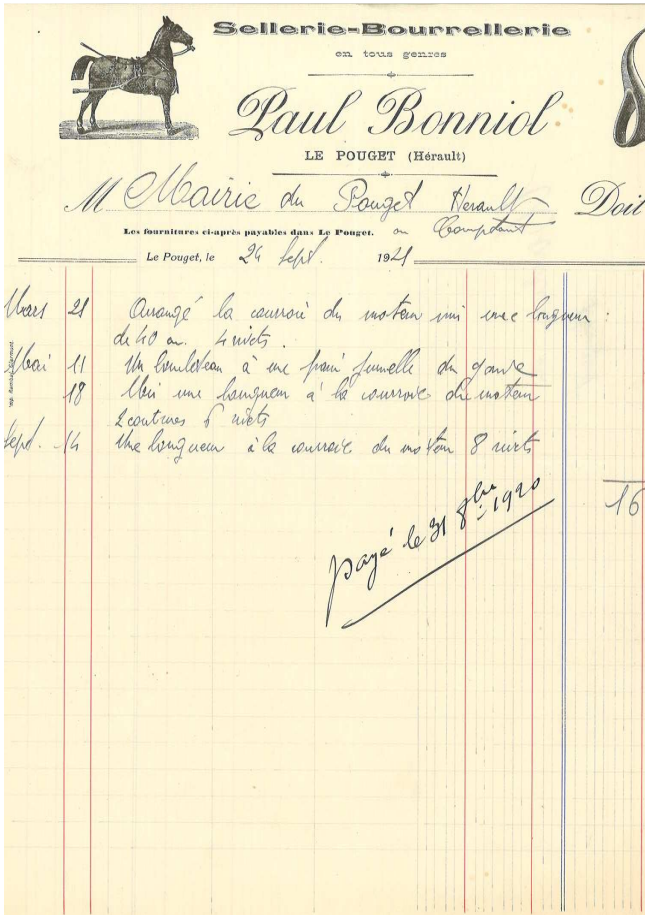 Sellerie-Bourrellerie
en tous genres
Paul Bonniol
LE POUGET (Hérault)
M Mairie du Pouget Herault Doit
Les fournitures ci-après payables dans Le Pouget. au Comptant
Le Pouget, le 24 Sept. 1921
Mars 21 Arrangé la courroie du moteur mis une longueur
de 40 4 rivets.
Mai 11 Un à une femelle du
18 Mis une longueur à la courroie du moteur
2 coutures 6 rivets
Sept. 14 Une longueur à la courroie du moteur 8 rivets
16
payé le 31 8bre 1920